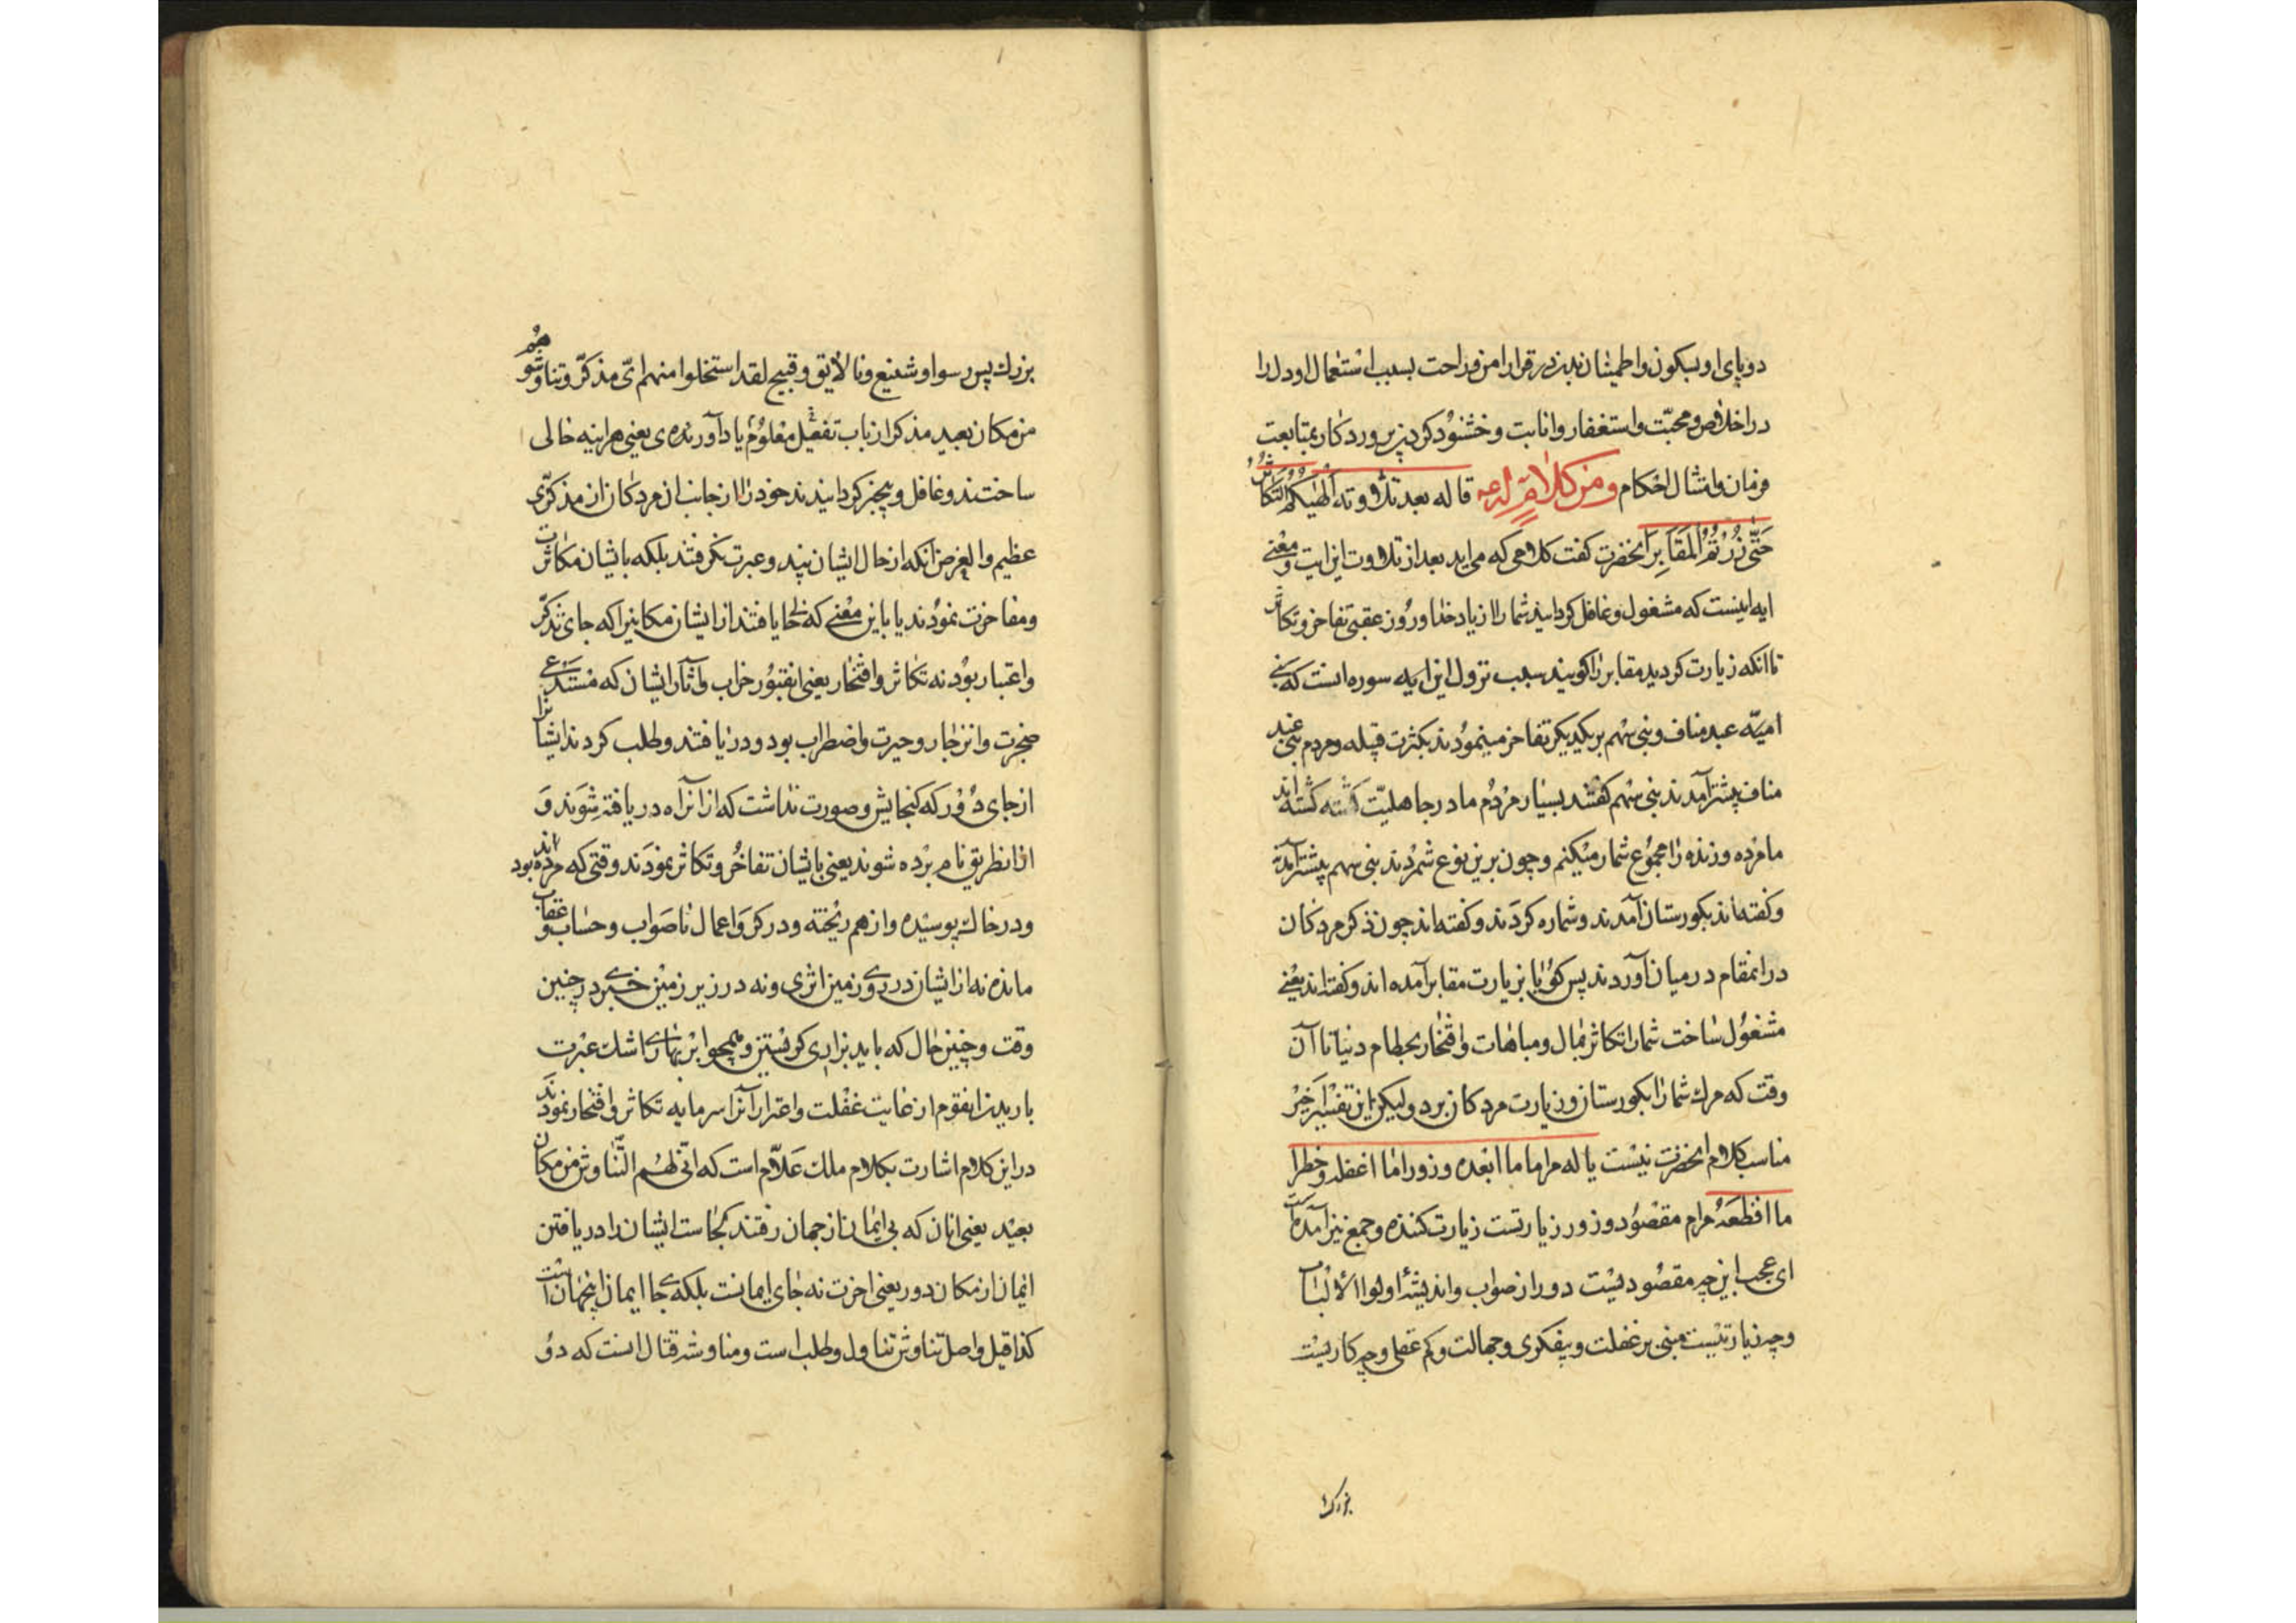 دوپای او بسکون و اطمینان بدن در قرار امن و راحت بسبب استعمال او دل را
در اخلاص و محبّت و استغفار و انابت و خشنود کردن پروردکار بمتابعت
فرمان و امتثال احکام و من کلام له ع قاله بعد تلاوته الهیکم التکاثر
حتّی زرتم المقابر انحضرت کفت کلامی که می اید بعد از تلاوت این ایت و معنی
ایه اینست که مشغول و غافل کردانید شما را از یاد خدا و روز عقبی تفاخر و تکاثر
تا انکه زیارت کردید مقابر را کویند سبب نزول این ایه سوره است که بنی
امیّه عبد مناف و بنی سهم بر یکدیکر تفاخر مینمودند بکثرت قبیله و مردم بنی عبد
مناف بیشتر آمدند بنی سهم کفتند بسیار مردم ما در جاهلیّت کشته کشته اند
ما مرده و زنده را مجموع شمار میکنم و چون برین نوع شمردند بنی سهم بیشتر آمدند
و کفته اند بکورستان آمدند و شماره کردند و کفته اند چون ذکر مردکان
در انمقام در میان آوردند پس کویا بزیارت مقابر آمده اند و کفته اند یعنی
مشغول ساخت شما را تکاثر بمال و مباهات و افتخار بحطام دنیا تا آن
وقت که مرک شما را بکورستان و زیارت مردکان برد و لیکن این تفسیر اخیر
مناسب کلام انحضرت نیست یا له مراما ما ابعده و زورا ما اغفله و خطرا
ما افظعه مرام مقصود و زور زیارتست زیارت کننده و جمع نیز آمده است
ای عجب این چه مقصودیست دور از صواب و اندیشهٔ اولوا الالباب
و چه زیارتیست مبنی بر غفلت و بیفکری و جهالت و کم عقلی و چه کاریست
بزرک
بزرک پس رسوا و شنیع و نالایق و قبیح لقد استخلوا منهم ایّ مذکّر و تناوشوهم
من مکان بعید مذکر از باب تفعیل معلوم یاد آورنده ی یعنی هراینه خالی
ساختند و غافل و بیخبر کردانیدند خود را از جانب ان مردکان از مذکّری
عظیم و الغرض انکه از حال ایشان پند و عبرت نکرفتند بلکه بایشان مکاثرت
و مفاخرت نمودند یا باین معنی که خالی یافتند از ایشان مکانیرا که جای تذکّر
و اعتبار بود نه تکاثر و افتخار یعنی انقبور خراب و آثار ایشان که مستدعی
ضجرت و انزجار و حیرت و اضطراب بود و دریافتند و طلب کردند ایشانرا
از جای دور که کنجایش و صورت نداشت که از انراه دریافته شوند و
از انطریق نام برده شوند یعنی بایشان تفاخر و تکاثر نمودند وقتی که مرده اند بود
و در خاک پوسیده و از هم ریخته و در کرو اعمال ناصواب و حساب و عقاب
مانده نه از ایشان در روی زمین اثری و نه در زیر زمین خبری در چنین
وقت و چنین حال که باید بزاری کریستن و همچو ابر بهاری اشک عبرت
باریدن انقوم از غایت غفلت و اغترار آنرا سرمایه تکاثر و افتخار نمودند
در این کلام اشارت بکلام ملک علّام است که انّی لهم التّناوش من مکان
بعید یعنی انان که بی ایمان از جهان رفتند کجاست ایشان را دریافتن
ایمان از مکان دور یعنی اخرت نه جای ایمانست بلکه جای ایمان اینجهان است
کذا قیل و اصل تناوش تناول و طلب است و مناوشه قتال است که دو